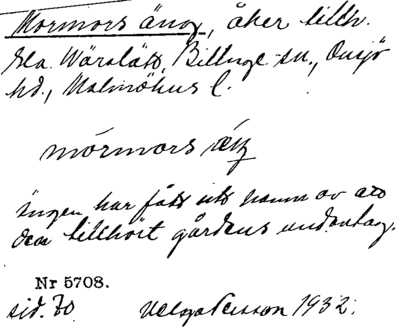 Mormors äng, åker tillh.
Gla. Wäraläss, Billinge sn., Onsjö
hd., Malmöhus l.
mórmors ǽŋ
ängen har fått sitt namn av att
den tillhört gårdens undantag.
Nr 5708.
sid. 70 Helge Persson 1932.